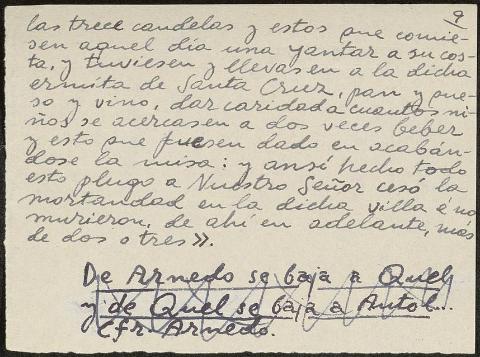 9
las trece candelas y estos que comie-
sen aquel día una yantar a su cos-
ta, y tuviesen y llevasen a la dicha
ermita de Santa Cruz, pan y que-
so y vino, dar caridad a cuantos ni-
ños se acercasen a dos veces beber
y esto que fuesen dado en acabán-
dose la misa: y ansí hecho todo
esto plugo a Nuestro Señor cesó la
mortandad en la dicha villa é no
murieron, de ahí en adelante, más
de dos o tres».
De Arnedo se baja a Quel
y de Quel se baja a Autol...
Cfr. Arnedo.